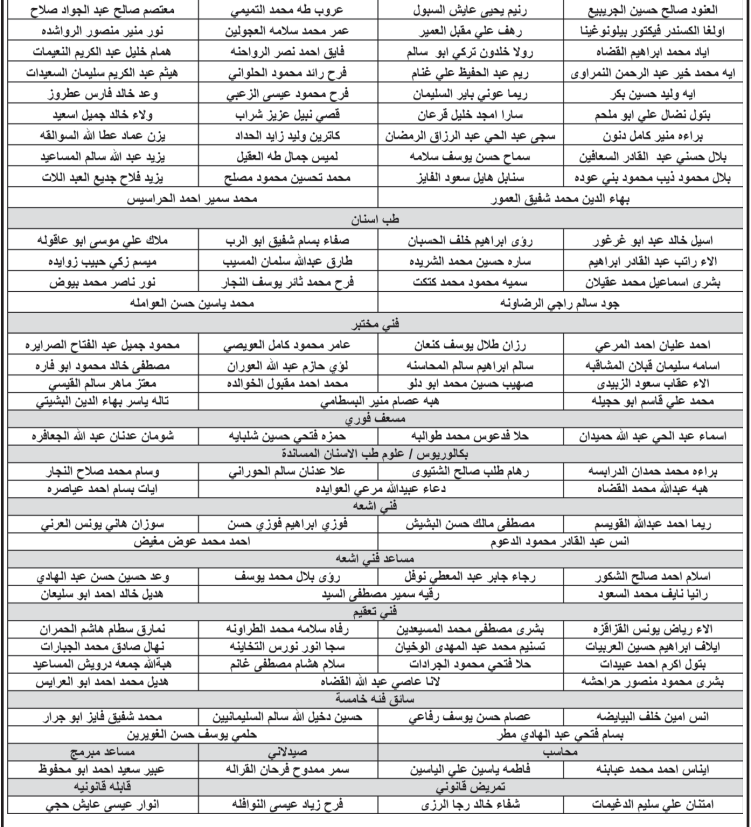 العنود صالح حسين الجريبيع رنيم يحيى عايش السبول عروب طه محمد التميمي معتصم صالح عبد الجواد صلاح
اولغا الكسندر فيكتور بيلونوغينا رهف علي مقبل العمير عمر محمد سلامه العجولين نور منير منصور الرواشده
اياد محمد ابراهيم القضاه رولا خلدون تركي ابو سالم فايق احمد نصر الرواحنه همام خليل عبد الكريم النعيمات
ايه محمد خير عبد الرحمن النمراوى ريم عبد الحفيظ علي غنام فرح رائد محمود الحلواني هيثم عبد الكريم سليمان السعيدات
ايه وليد حسين بكر ريما عوني باير السليمان فرح محمود عيسى الزعبي وعد خالد فارس عطروز
بتول نضال علي ابو ملحم سارا امجد خليل قرعان قصي نبيل عزيز شراب ولاء خالد جميل اسعيد
براءه منير كامل دنون سجى عبد الحي عبد الرزاق الرمضان كاترين وليد زايد الحداد يزن عماد عطا الله السوالقه
بلال حسني عبد القادر السعافين سماح حسن يوسف سلامه لميس جمال طه العقيل يزيد عبد الله سالم المساعيد
بلال محمود ذيب محمود بني عوده سنابل هايل سعود الفايز محمد تحسين محمود مصلح يزيد فلاح جديع العبد اللات
بهاء الدين محمد شفيق العمور محمد سمير احمد الحراسيس
طب اسنان
اسيل خالد عبد ابو غرغور رؤى ابراهيم خلف الحسبان صفاء بسام شفيق ابو الرب ملاك علي موسى ابو عاقوله
الاء راتب عبد القادر ابراهيم ساره حسين محمد الشريده طارق عبدالله سلمان المسيب ميسم زكي حبيب زوايده
بشرى اسماعيل محمد عقيلان سميه محمود محمد كتكت فرح محمد ثائر يوسف النجار نور ناصر محمد بيوض
جود سالم راجي الرضاونه محمد ياسين حسن العوامله
فني مختبر
احمد عليان احمد المرعي رزان طلال يوسف كنعان عامر محمود كامل العويصي محمود جميل عبد الفتاح الصرايره
اسامه سليمان قبلان المشاقبه سالم ابراهيم سالم المحاسنه لؤي حازم عبد الله العوران مصطفى خالد محمود ابو فاره
الاء عقاب سعود الزبيدى صهيب حسين محمد ابو دلو محمد احمد مقبول الخوالده معتز ماهر سالم القيسي
محمد علي قاسم ابو حجيله هبه عصام منير البسطامي تاله ياسر بهاء الدين البشيتي
مسعف فوري
اسماء عبد الحي عبد الله حميدان حلا فدعوس محمد طوالبه حمزه فتحي حسين شلبايه شومان عدنان عبد الله الجعافره
بكالوريوس / علوم طب الاسنان المساندة
براءه محمد حمدان الدرابسه رهام طلب صالح الشتيوى علا عدنان سالم الحوراني وسام محمد صلاح النجار
هبه عبدالله محمد القضاه دعاء عبيدالله مرعي العوايده ايات بسام احمد عياصره
فني اشعه
ريما احمد عبدالله القويسم مصطفى مالك حسن البشيش فوزي ابراهيم فوزي حسن سوزان هاني يونس العرني
انس عبد القادر محمود الدعوم احمد محمد عوض مغيض
مساعد فني اشعه
اسلام احمد صالح الشكور رجاء جابر عبد المعطي نوفل رؤى بلال محمد يوسف وعد حسين حسن عبد الهادي
رانيا نايف محمد السعود رقيه سمير مصطفى السيد هديل خالد احمد ابو سليعان
فني تعقيم
الاء رياض يونس القزاقزه بشرى مصطفى محمد المسيعدين رفاه سلامه محمد الطراونه نمارق سطام هاشم الحمران
ايلاف ابراهيم حسين العربيات تسنيم محمد عبد المهدى الوخيان سجا انور نورس التخاينه نهال صادق محمد الجبارات
بتول اكرم احمد عبيدات حلا فتحي محمود الجرادات سلام هشام مصطفى غانم هبةالله جمعه درويش المساعيد
بشرى محمود منصور حراحشه لانا عاصي عبد الله القضاه هديل محمد احمد ابو العرايس
سائق فئه خامسة
انس امين خلف البيايضه عصام حسن يوسف رفاعي حسين دخيل الله سالم السليمانيين محمد شفيق فايز ابو جرار
بسام فتحي عبد الهادي مطر حلمي يوسف حسن الغويرين
محاسب صيدلاني مساعد مبرمج
ايناس احمد محمد عبابنه فاطمه ياسين علي الياسين سمر ممدوح فرحان القراله عبير سعيد احمد ابو محفوظ
تمريض قانوني قابله قانونيه
امتنان علي سليم الدغيمات شفاء خالد رجا الرزى فرح زياد عيسى النوافله انوار عيسى عايش حجي